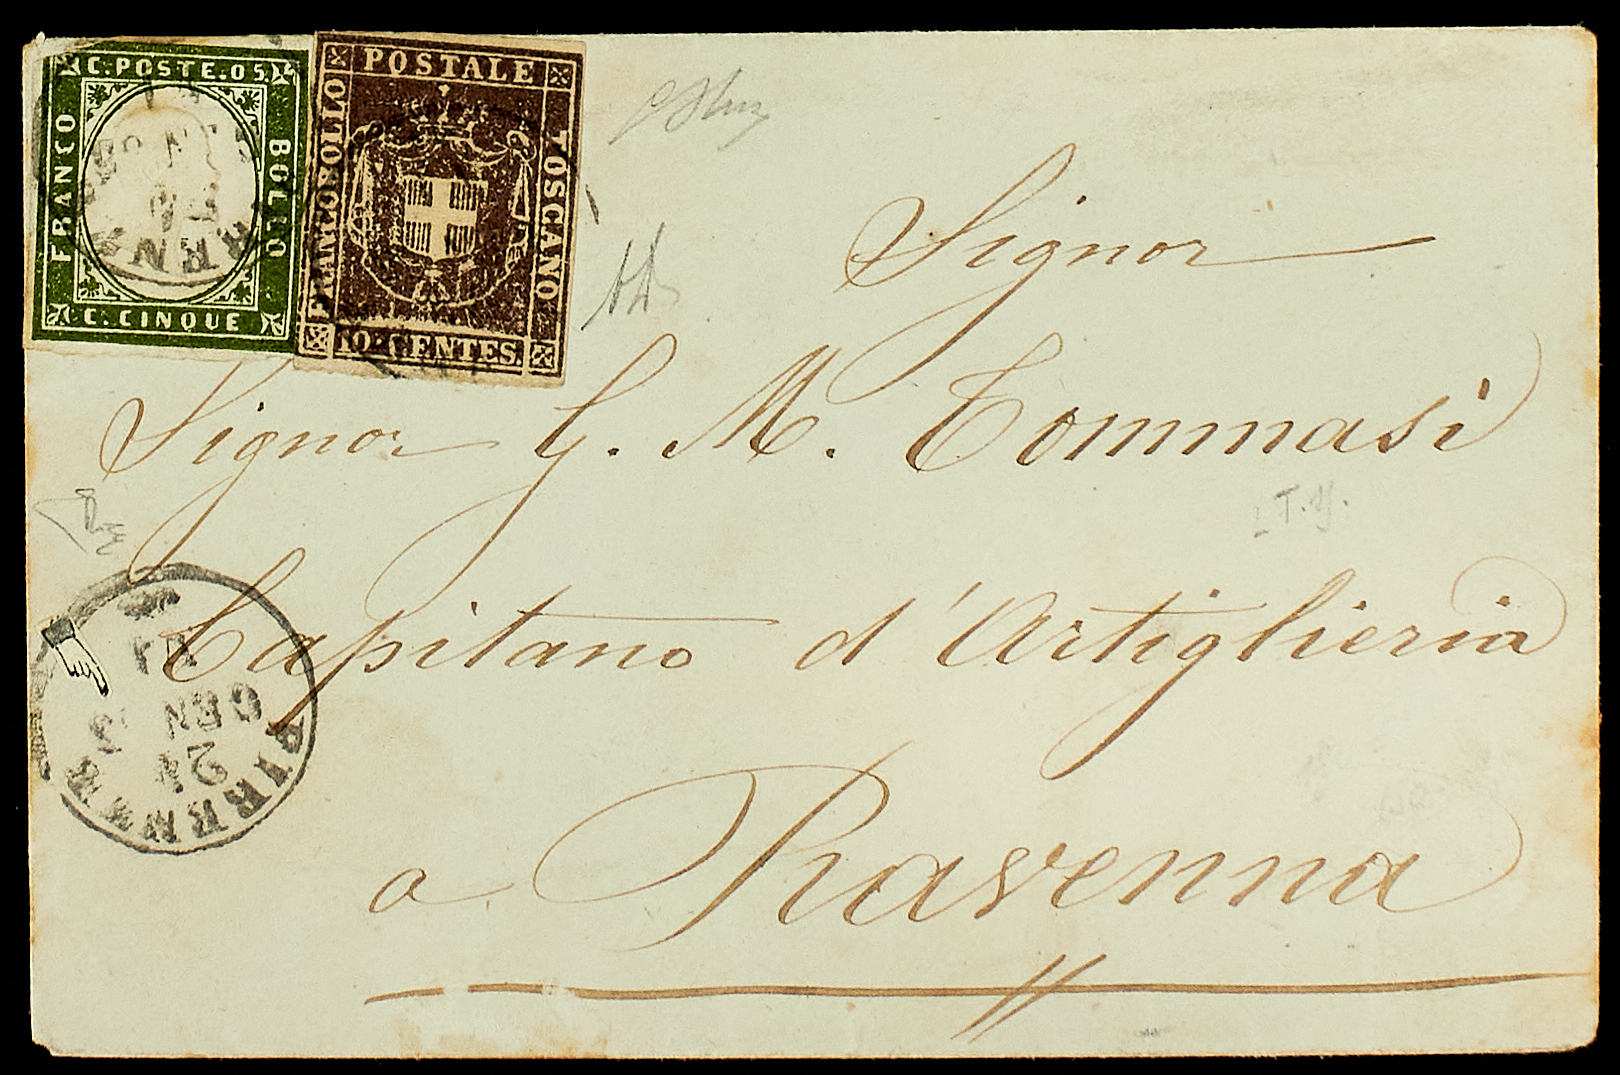 C. POSTE. 05.
FRANCO
BOLLO
C. CINQUE
POSTALE
FRANCOBOLLO
TOSCANO
10 CENTES.
Signor
Signor G. M. Tommasi
Capitano d'Artiglieria
a Ravenna
FIRENZE
21
GEN
61
L T. Y.